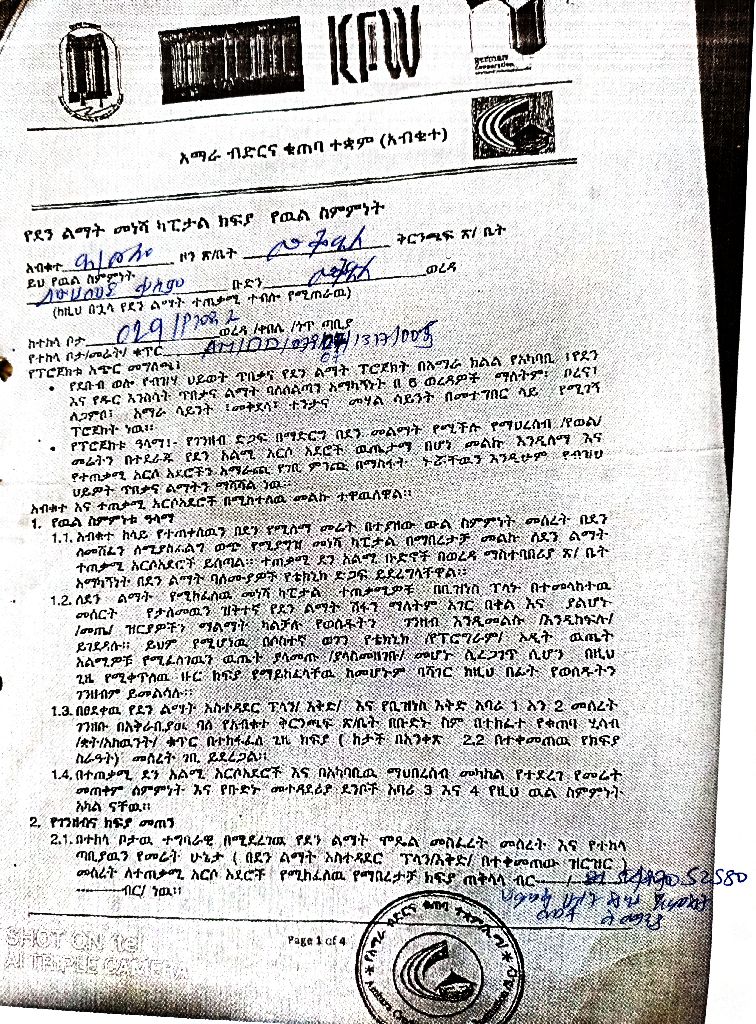 KFW
german
cooperation
አማራ ብድርና ቁጠባ ተቋም (አብቁተ)
የደን ልማት መነሻ ካፒታል ክፍያ የዉል ስምምነት
አብቁተ ዞን ጽ/ቤት ቅርንጫፍ ጽ/ ቤት
ይህ የዉል ስምምነት
ቡድን ወረዳ
(ከዚህ በኋላ የደን ልማት ተጠቃሚ ተብሎ የሚጠራዉ)
ከተከላ ቦታ 029 ወረዳ /ቀበሌ /ጎጥ ጣቢያ
የተከላ ቦታ/መሬት/ ቁጥር
የፕሮጀክቱ አጭር መግለጫ፤
• የደቡብ ወሎ የብዝሃ ህይወት ጥበቃና የደን ልማት ፕሮጀክት በአማራ ክልል የአካባቢ ፣የደን
እና የዱር እንስሳት ጥበቃና ልማት ባለስልጣን አማካኝነት በ 6 ወረዳዎች ማለትም፡ ቦረና፣
ለጋምቦ፣ አማራ ሳይንት ፣መቅደላ፣ ተንታና መሃል ሳይንት በመተግበር ላይ የሚገኝ
ፕሮጀክት ነዉ።
• የፕሮጀክቱ ዓላማ፤- የገንዘብ ድጋፍ በማድርግ በደን መልማት የሚችሉ የማህረሰብ /የወል/
መሬትን በተደራጁ የደን አልሚ አርሶ አደሮች ዉጤታማ በሆነ መልኩ እንዲለማ እና
የተጠቃሚ አርሶ አደሮችን አማራጭ የገቢ ምንጭ በማስፋት ኑሯቸዉን እንዲሁም የብዝሃ
ህይዎት ጥበቃና ልማትን ማሻሻል ነው።
አብቁተ እና ተጠቃሚ አርሶአደሮች በሚከተለዉ መልኩ ተዋዉለዋል።
1. የዉል ስምምነቱ ዓላማ
1.1. አብቁተ ከላይ የተጠቀሰዉን በደን የሚለማ መሬት በተያዘው ውል ስምምነት መሰረት በደን
ለመሸፈን ለሚያስፈልግ ወጭ የሚያግዝ መነሻ ካፒታል በማበረታቻ መልኩ ለደን ልማት
ተጠቃሚ አርሶአደሮች ይሰጣል። ተጠቃሚ ደን አልሚ ቡድኖች በወረዳ ማስተባበሪያ ጽ/ ቤት
አማካኝነት በደን ልማት ባለሙያዎች የቴክኒክ ድጋፍ ይደረግላቸዋል።
1.2. ለደን ልማት የሚከፈለዉ መነሻ ካፒታል ተጠቃሚዎች በቢዝነስ ፕላኑ በተመላከተዉ
መሰርት የታለመዉን ዝቅተኛ የደን ልማት ሽፋን ማለትም አገር በቀል እና ያልሆኑ
/መጤ/ ዝርያዎችን ማልማት ካልቻሉ የወሰዱትን ገንዘብ እንዲመልሱ /እንዲከፍሉ/
ይገደዳሉ። ይህም የሚሆነዉ በሶስተኛ ወገን የቴክኒክ /የፕሮግራም/ ኦዲት ዉጤት
አልሚዎቹ የሚፈለገዉን ዉጤት ያላመጡ /ያላስመዘገቡ/ መሆኑ ሲረጋገጥ ሲሆን በዚህ
ጊዜ የሚቀጥለዉ ዙር ክፍያ የማይከፈላቸዉ ከመሆኑም ባሻገር ከዚህ በፊት የወሰዱትን
ገንዘብም ይመልሳሉ።
1.3. በፀደቀዉ የደን ልማት አስተዳደር ፕላን/ እቅድ/ እና የቢዝነስ እቅድ አባሪ 1 እን 2 መሰረት
ገንዘቡ በአቅራቢያዉ ባለ የአብቁተ ቅርንጫፍ ጽ/ቤት በቡድኑ ስም በተከፈተ የቁጠባ ሂሳብ
/ቋት/አካዉንት/ ቁጥር በተከፋፈለ ጊዜ ክፍያ ( ከታች በአንቀጽ 2.2 በተቀመጠዉ የክፍያ
ስራዓት) መሰረት ገቢ ይደረጋል።
1.4. በተጠቃሚ ደን አልሚ አርሶአደሮች እና በአካባቢዉ ማህበረሰብ መካከል የተደረገ የመሬት
መጠቀም ስምምነት እና የቡድኑ መተዳደሪያ ደንቦች አባሪ 3 እና 4 የዚህ ዉል ስምምነት
አካል ናቸዉ።
2. የገንዘብና ክፍያ መጠን
2.1. በተከላ ቦታዉ ተግባራዊ በሚደረገዉ የደን ልማት ሞዴል መስፈረት መሰረት እና የተከላ
ጣቢያዉን የመሬት ሁኔታ ( በደን ልማት አስተዳደር ፕላን/እቅድ/ በተቀመጠው ዝርዝር )
መሰረት ለተጠቃሚ አርሶ አደሮች የሚከፈለዉ የማበረታቻ ክፍያ ጠቅላላ ብር-------/ 52580
----------ብር/ ነዉ።
Page 1 of 4
SHOT ON itel
AI TRIPLE CAMERA